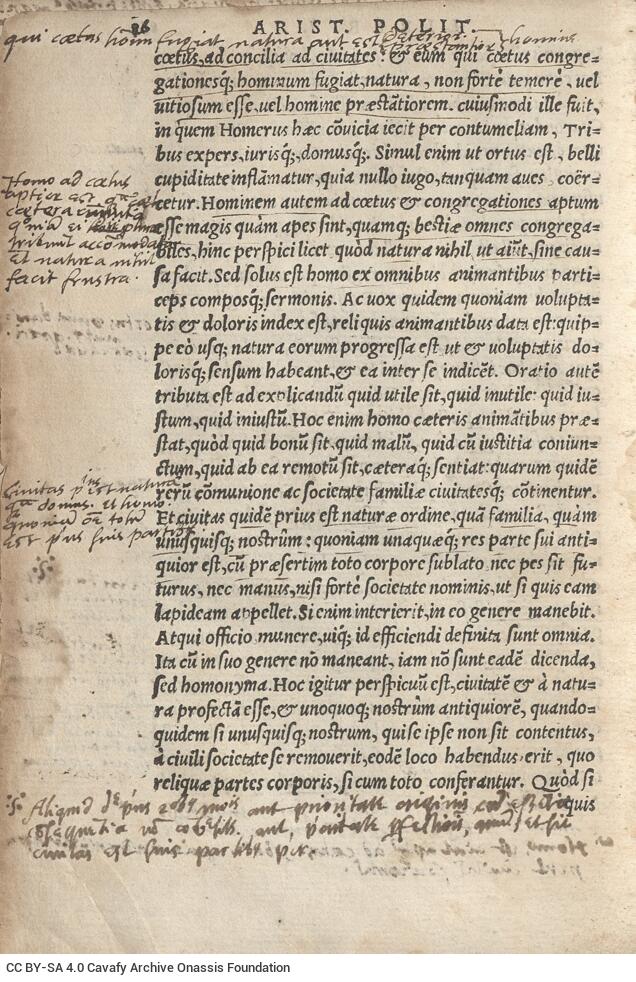 26 ARIST. POLIT.
qui cœtus hoīm fugiat natura aut est deterior
hominis
cœtus, ad concilia ad civitates : & eum qui cœtus congre=
gationesq; hominum fugiat, natura, non fortè temerè, vel
uitiosum esse, uel homine præstātiorem. cuiusmodi ille fuit,
in quem Homerus hæc cōuicia iecit per contumeliam, Tri=
bus expers, iurisq;, domusq;. Simul enim ut ortus est, belli
cupiditate inflāmatur, quia nullo iugo, tanquam aues, coër=
cetur. Hominem autem ad cœtus & congregationes aptum
esse magis quàm apes sint, quamq; bestiæ omnes congrega=
biles, hinc perspici licet quòd natura nihil ut aiūt, sine cau=
sa facit. Sed solus est homo ex omnibus animantibus parti=
ceps composq; sermonis. Ac uox quidem quoniam uolupta=
tis & doloris index est, reliquis animantibus data est: quip=
pe eò usq; natura eorum progressa est ut & voluptatis do=
lorisq; sensum habeant, & ea inter se indicēt. Oratio autē
tributa est ad explicandū quid utile sit, quid inutile: quid iu=
stum, quid iniustū. Hoc enim homo cæteris animātibus præ=
stat, quòd quid bonū sit, quid malū, quid cū iustitia coniun=
ctum, quid ab ea remotū sit, cæteraq; sentiat: quarum quidē
rerū cōmunione ac societate familiæ civitatesq; cōtinentur.
Et civitas quidē prius est naturæ ordine, quā familia, quàm
unusquisq; nostrûm : quoniam unaquæq; res parte sui anti=
quior est, cū præsertim toto corpore sublato nec pes sit fu=
turus, nec manus, nisi fortè societate nominis, ut si quis eam
lapideam appellet. Si enim interierit, in eo genere manebit.
Atqui officio munere, uiq; id efficiendi definita sunt omnia.
Ita cū in suo genere nō maneant, iam nō sunt eadē dicenda,
sed homonyma. Hoc igitur perspicuū est, civitatē & à natu=
ra profectā esse, & unoquoq; nostrûm antiquiorē, quando=
quidem si unusquisq; nostrum, quise ipse non sit contentus,
à civili societate se removerit, eodē loco habendus erit, quo
reliquæ partes corporis, si cum toto conferantur. Quòd si
quis
Homo ad cœtus
aptior est
cætera
tribuit accōmoda
et natura nihil
facit frustra.
Civitas prius est natura
domus. et homo.
quoniam totū
est prius suis partibus
Aliquid
civitas est suis partibus
CC BY-SA 4.0 Cavafy Archive Onassis Foundation